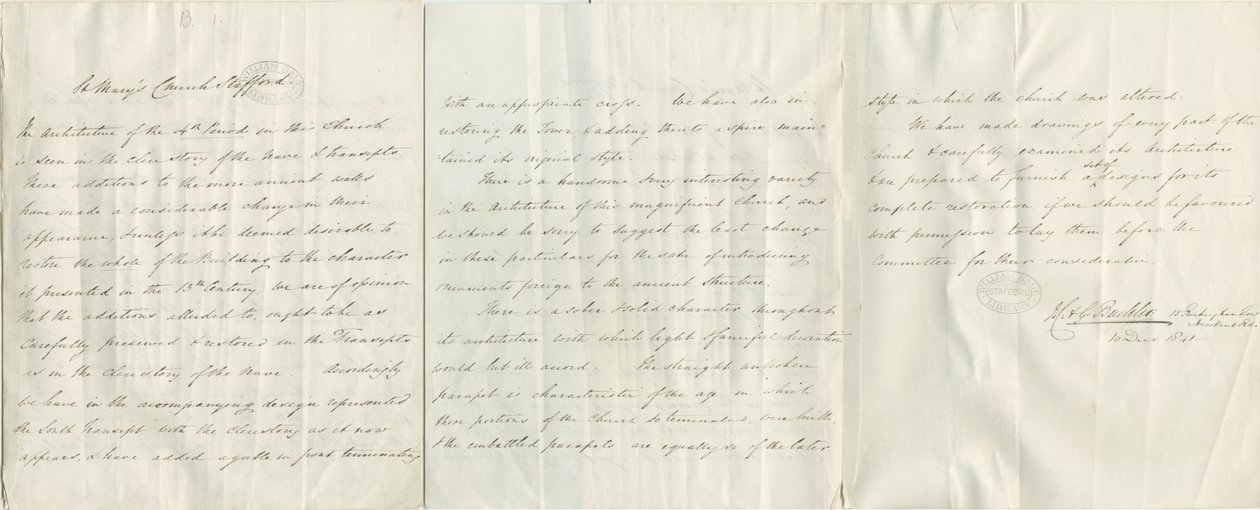 B. 1.
St Mary's Church Stafford.
WILLIAM SALT LIBRARY
The Architecture of the 4th Period in this Church
is seen in the clere story of the Nave & transepts
These additions to the more ancient walls
have made a considerable change in their
appearance, & unless it be deemed desirable to
restore the whole of the Building to the character
it presented in the 13th Century, we are of opinion
that the additions alluded to, ought to be as
carefully preserved & restored in the Transepts
as in the Clerestory of the Nave. Accordingly
we have in the accompanying design represented
the South Transept with the Clerestory as it now
appears, & have added a gable in front terminating
with an appropriate cross. We have also in
restoring the Tower & adding thereto a spire, main=
tained its original style.
There is a handsome & very interesting variety
in the Architecture of this magnificent Church, and
we should be sorry to suggest the least change
in these particulars for the sake of introducing
ornaments foreign to the ancient Structure.
There is a sober & solid character throughout
its architecture with which light & fanciful decoration
would but ill accord. The straight unbroken
parapet is characteristic of the age in which
those portions of the Church so terminated, were built,
& the embattled parapets are equally so of the later
style in which the church was altered.
We have made drawings of every part of the
Church & carefully examined its Architecture
& are prepared to furnish a set of designs for its
complete restoration if we should be favoured
with permission to lay them before the
Committee for their consideration.
WILLIAM SALT LIBRARY STAFFORD
J.C. & C. Buckler
15 Rockingham Row
New Kent Rd
10 Decr 1841